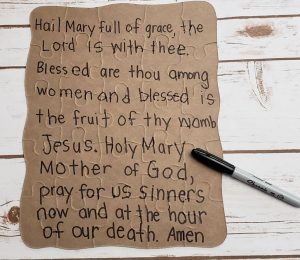 Hail Mary full of grace, the
Lord is with thee.
Blessed are thou among
women and blessed is
the fruit of thy womb
Jesus. Holy Mary
Mother of God,
pray for us sinners
now and at the hour
of our death. Amen
Sharpie